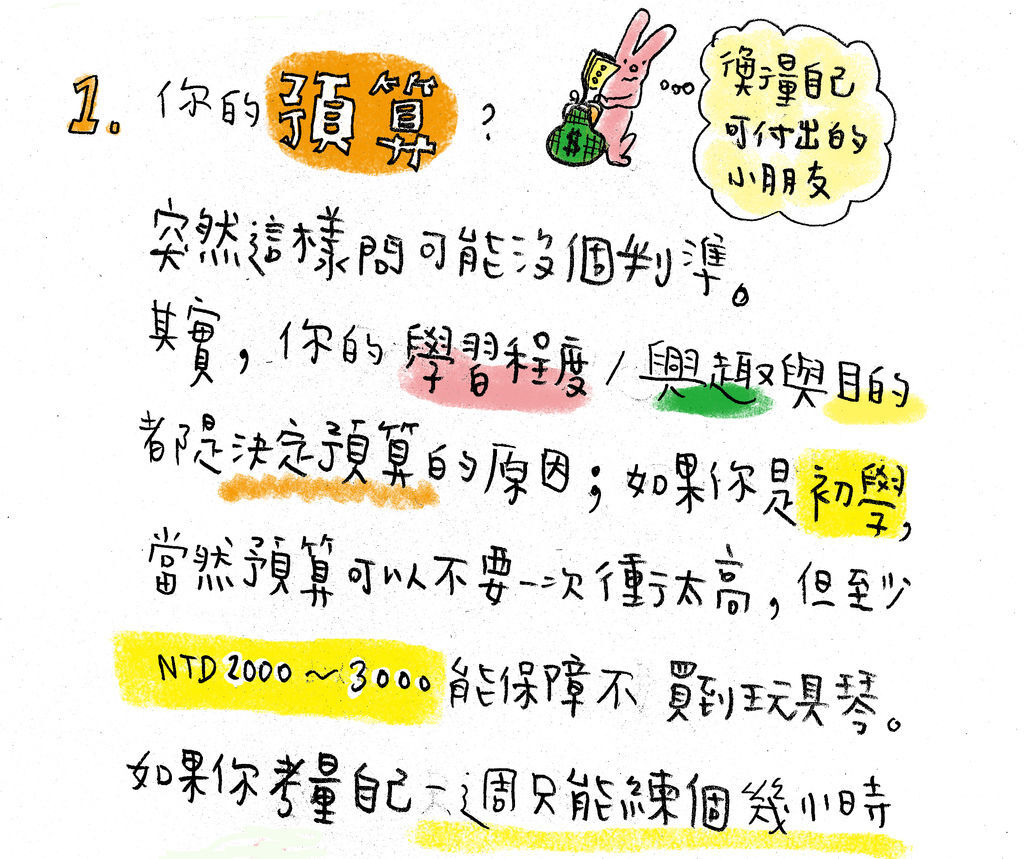 1. 你的預算?
衡量自己
可付出的
小朋友
$
突然這樣問可能沒個判準。
其實,你的學習程度/興趣與目的
都是決定預算的原因;如果你是初學,
當然預算可以不要一次衝太高,但至少
NTD 2000~3000 能保障不買到玩具琴。
如果你考量自己一週只能練個幾小時